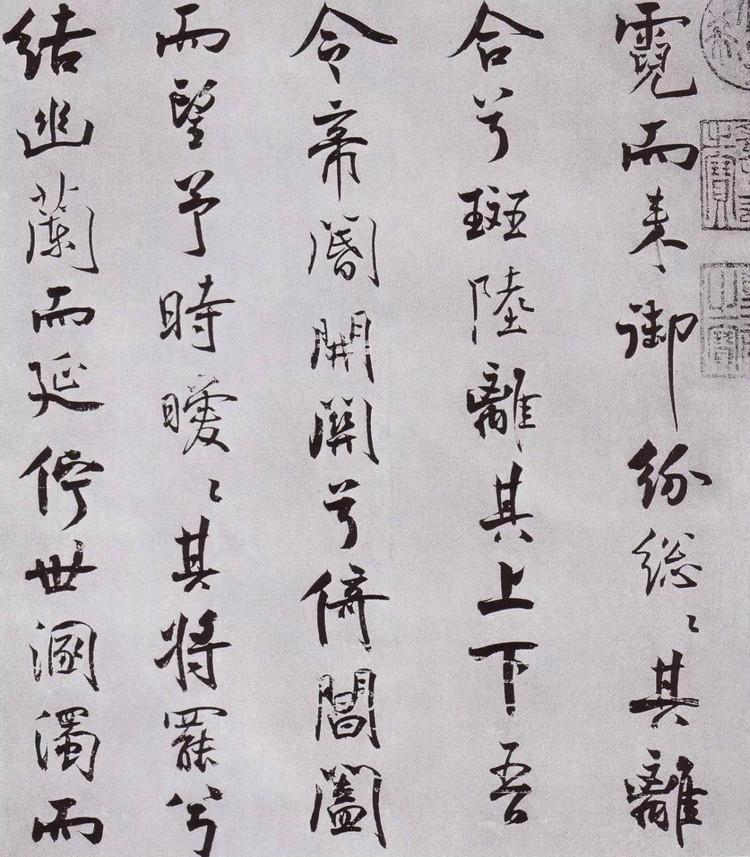 霓而来御紛緫〻其離
合兮斑陸離其上下吾
令帝閽開關兮倚閶闔
而望予時曖〻其将罷兮
結幽蘭而延佇世溷濁而